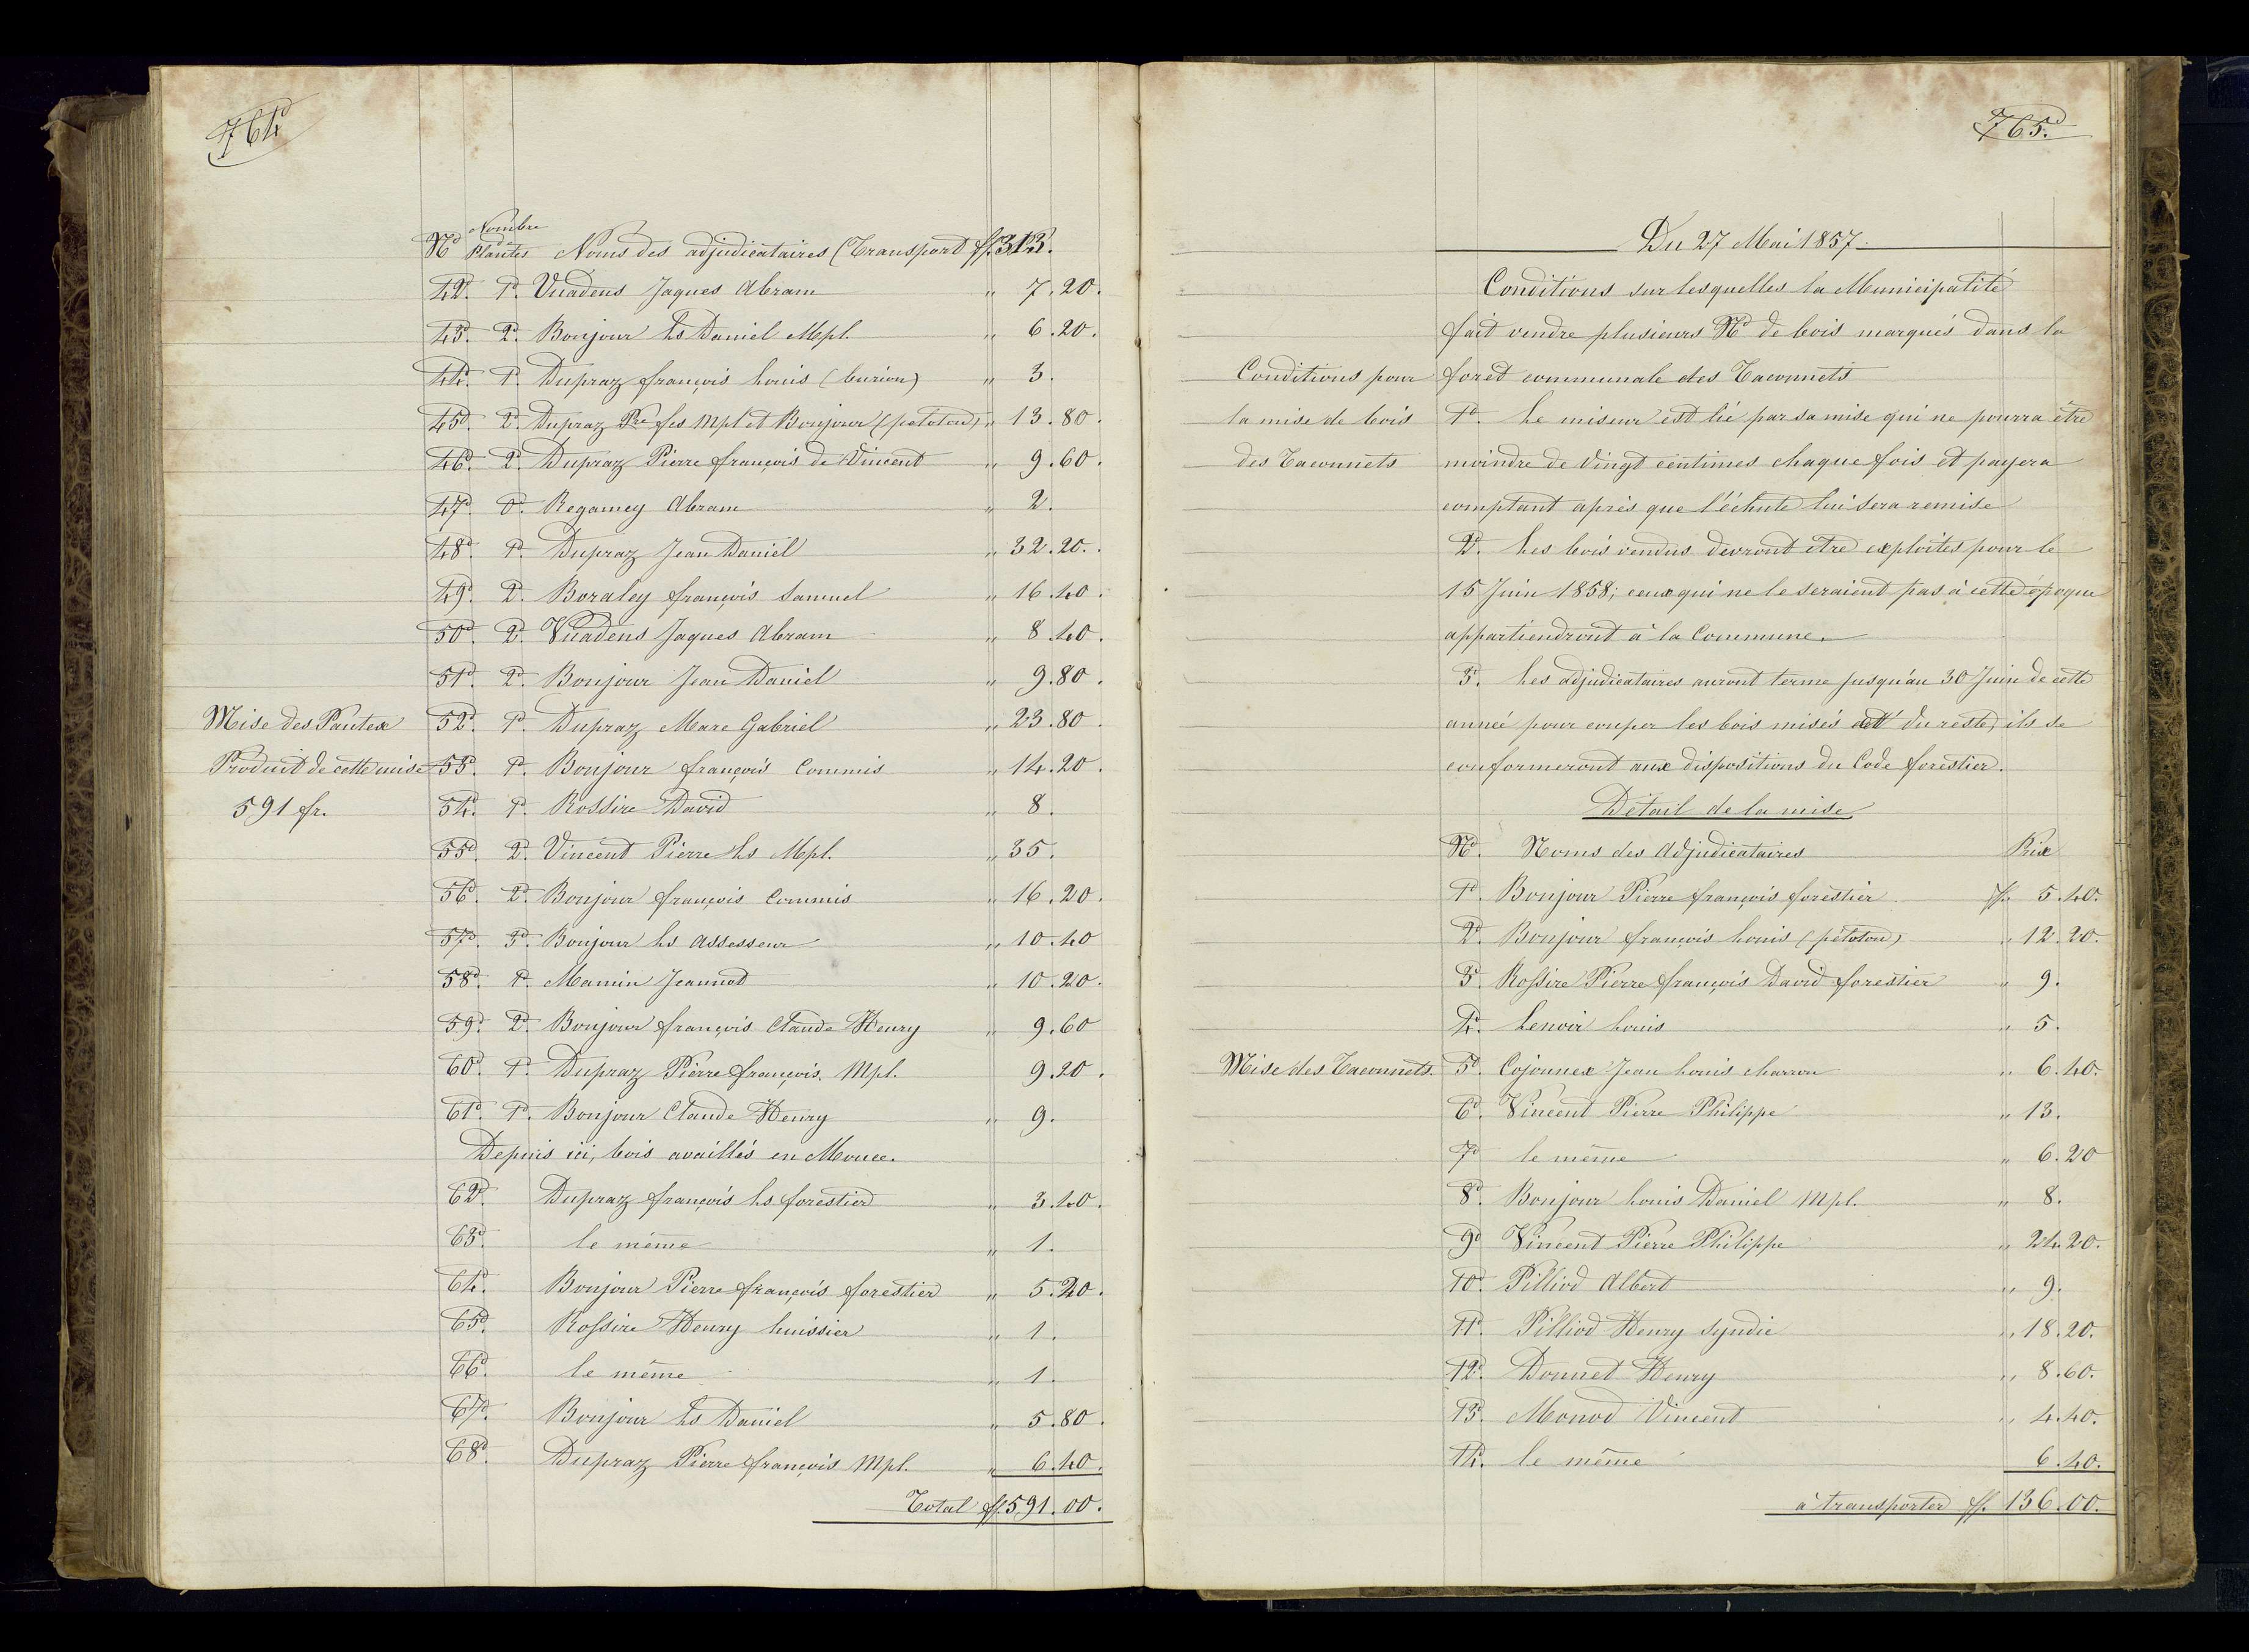 764
Nombre
de
No Plantes Noms des adjudicataires (Transport ff. 313.
42. 1. Vuadens Jaques Abram " 7.20.
43. 2. Bonjour Ls Daniel Mpl. " 6.20.
44. 1. Dupraz françois Louis (burion) " 3.
45. 2. Dupraz Pre fcs Mpl et Bonjour (peloton) " 13.80.
46. 2. Dupraz Pierre françois de Vincent " 9.60.
47. 0. Regamey Abram " 2.
48. 1. Dupraz Jean Daniel " 32.20.
49. 2. Boraley françois Samuel " 16.40.
50. 2. Vuadens Jaques Abram " 8.40.
51. 2. Bonjour Jean Daniel " 9.80.
Mise des Pautex 52. 1. Dupraz Marc Gabriel " 23.80.
Produit de cette mise 53. 1. Bonjour françois Commis " 14.20.
591 fr. 54. 1. Rossire David " 8.
55. 2. Vincent Pierre Ls Mpl. " 35.
56. 2. Bonjour françois Commis " 16.20.
57. 3. Bonjour Ls Assesseur " 10.40
58. 1. Mamin Jeannot " 10.20.
59. 2. Bonjour françois Claude Henry " 9.60
60. 1. Dupraz Pierre françois. Mpl. 9.20.
61. 1. Bonjour Claude Henry " 9.
Depuis ici, bois availlés en Mouce.
62. Dupraz françois Ls forestier " 3.40.
63. le même " 1.
64. Bonjour Pierre françois forestier " 5.20.
65. Rossire Henry huissier " 1.
66. le même " 1.
67. Bonjour Ls Daniel " 5.80.
68. Dupraz Pierre françois Mpl. " 6.40.
Total ff. 591.00.
765.
Du 27 Mai 1857.
Conditions sur lesquelles la Municipalité
fait vendre plusieurs No de bois marqués dans la
Conditions pour forêt communale des Taconnets
la mise de bois 1o. Le miseur est lié par sa mise qui ne pourra être
des Taconnets moindre de Vingt centimes chaque fois et payera
comptant après que l'échute lui sera remise
2o. Les bois vendus devront être exploités pour le
15 Juin 1858; ceux qui ne le seraient pas à cette époque
appartiendront à la Commune.
3o. Les adjudicataires auront terme jusqu'au 30 Juin de cette
année pour couper les bois misés et du reste, ils se
conformeront aux dispositions du Code forestier.
Détail de la mise
No. Noms des Adjudicataires Prix
1. Bonjour Pierre françois forestier ff. 5.40.
2. Bonjour françois Louis (péloton) " 12.20.
3. Rossire Pierre françois David forestier " 9.
4. Lenoir Louis " 5.
Mise des Taconnets. 5. Cojonnex Jean Louis charron " 6.40.
6. Vincent Pierre Philippe " 13.
7. le même " 6.20
8. Bonjour Louis Daniel Mpl. " 8.
9. Vincent Pierre Philippe " 24.20.
10. Pilliod Albert " 9.
11. Pilliod Henry syndic " 18.20.
12. Donnet Henry " 8.60.
13. Monod Vincent " 4.40.
14. le même 6.40.
à transporter ff. 136.00.